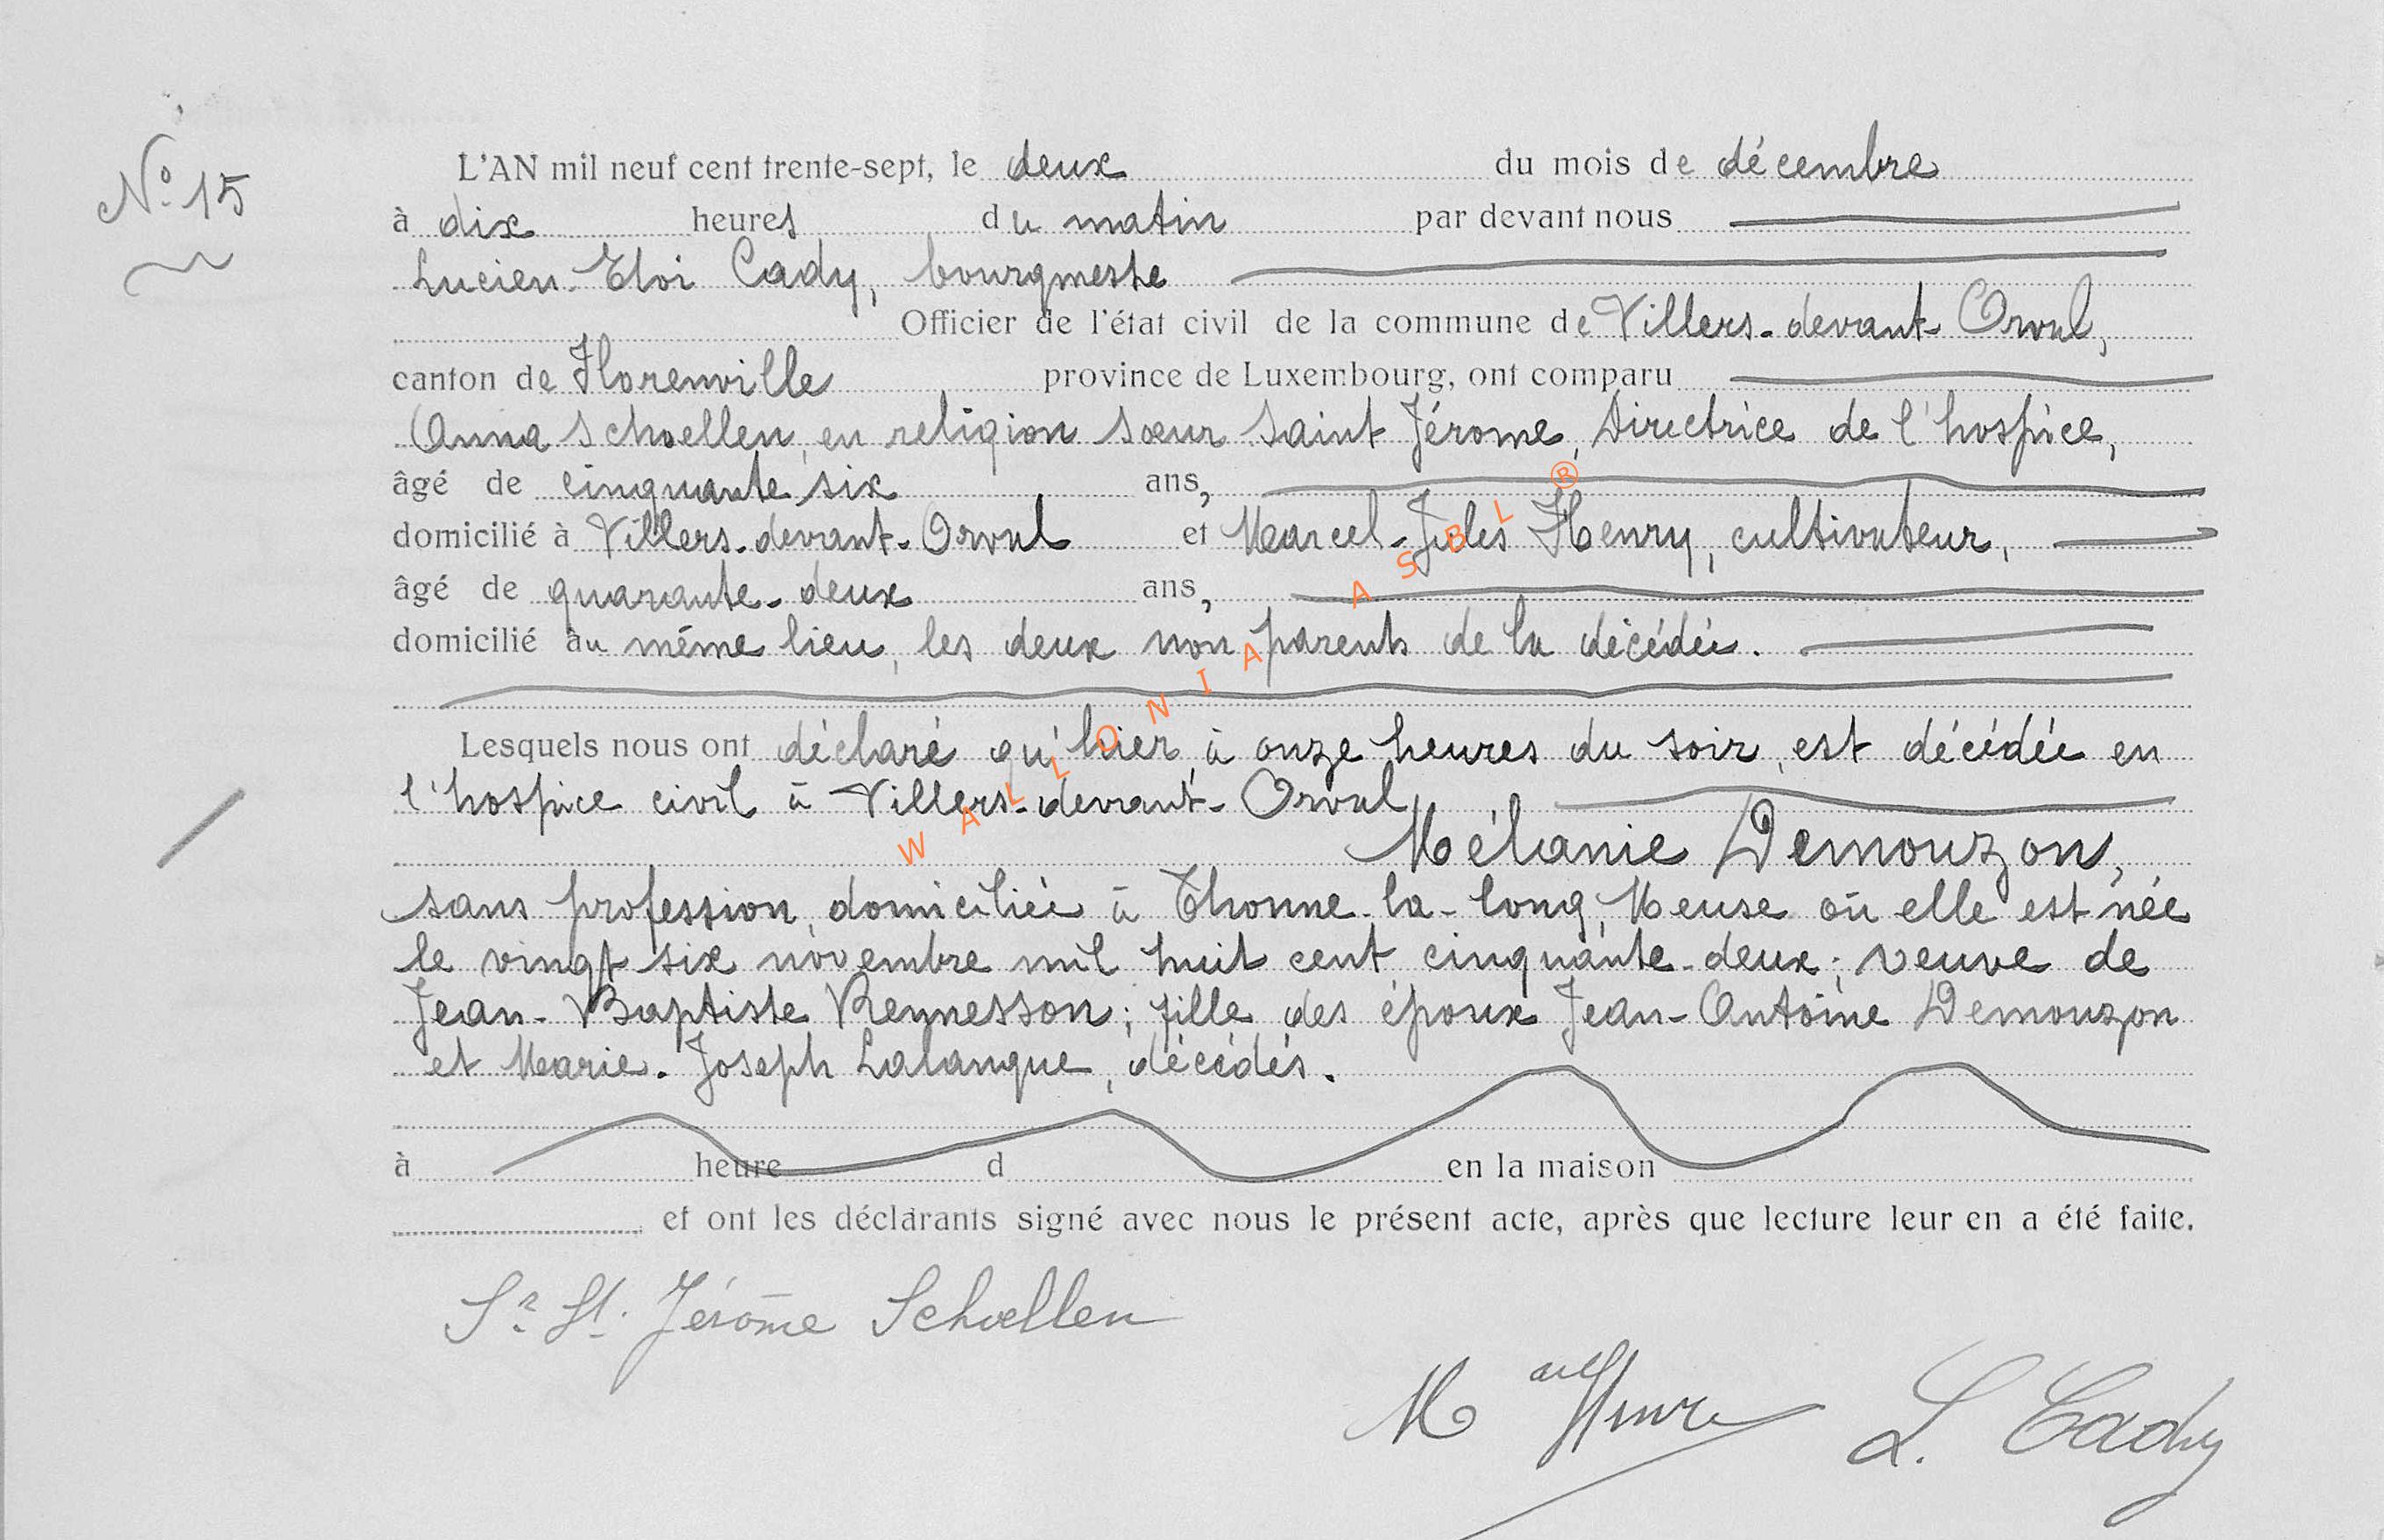 N° 15
L'AN mil neuf cent trente-sept, le deux du mois de décembre
à dix heures du matin par devant nous
Lucien-Eloi Cady, bourgmestre
Officier de l'état civil de la commune de Villers-devant-Orval,
canton de Florenville province de Luxembourg, ont comparu
Anna Schoellen, en religion sœur Saint Jérome, Directrice de l'hospice,
âgé de cinquante six ans,
domicilié à Villers-devant-Orval et Marcel-Jules Henry, cultivateur,
âgé de quarante-deux ans,
domicilié au même lieu, les deux non parents de la décédée.
Lesquels nous ont déclaré qu'hier, à onze heures du soir, est décédée en
l'hospice civil à Villers-devant-Orval,
Mélanie Demouzon,
sans profession, domiciliée à Thonne-la-long, Meuse où elle est née
le vingt six novembre mil huit cent cinquante-deux; veuve de
Jean-Baptiste Rennesson; fille des époux Jean-Antoine Demouzon
et Marie-Joseph Lalangue, décédés.
à heure d en la maison
et ont les déclarants signé avec nous le présent acte, après que lecture leur en a été faite.
Sr St. Jérôme Schoellen
M Henry L. Cady
WALLONIA ASBL ®